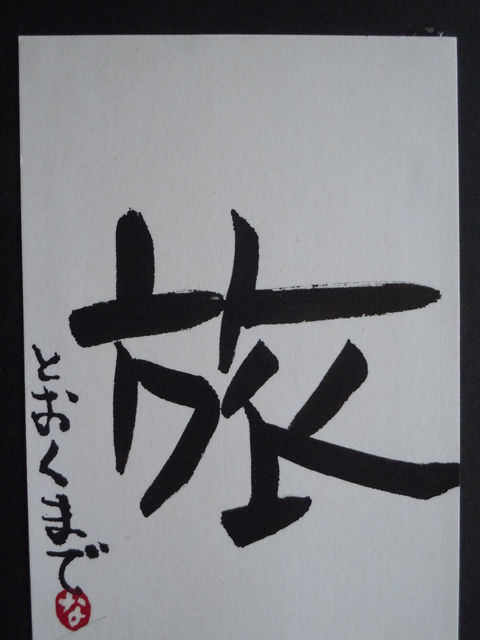 旅
とおくまで
な